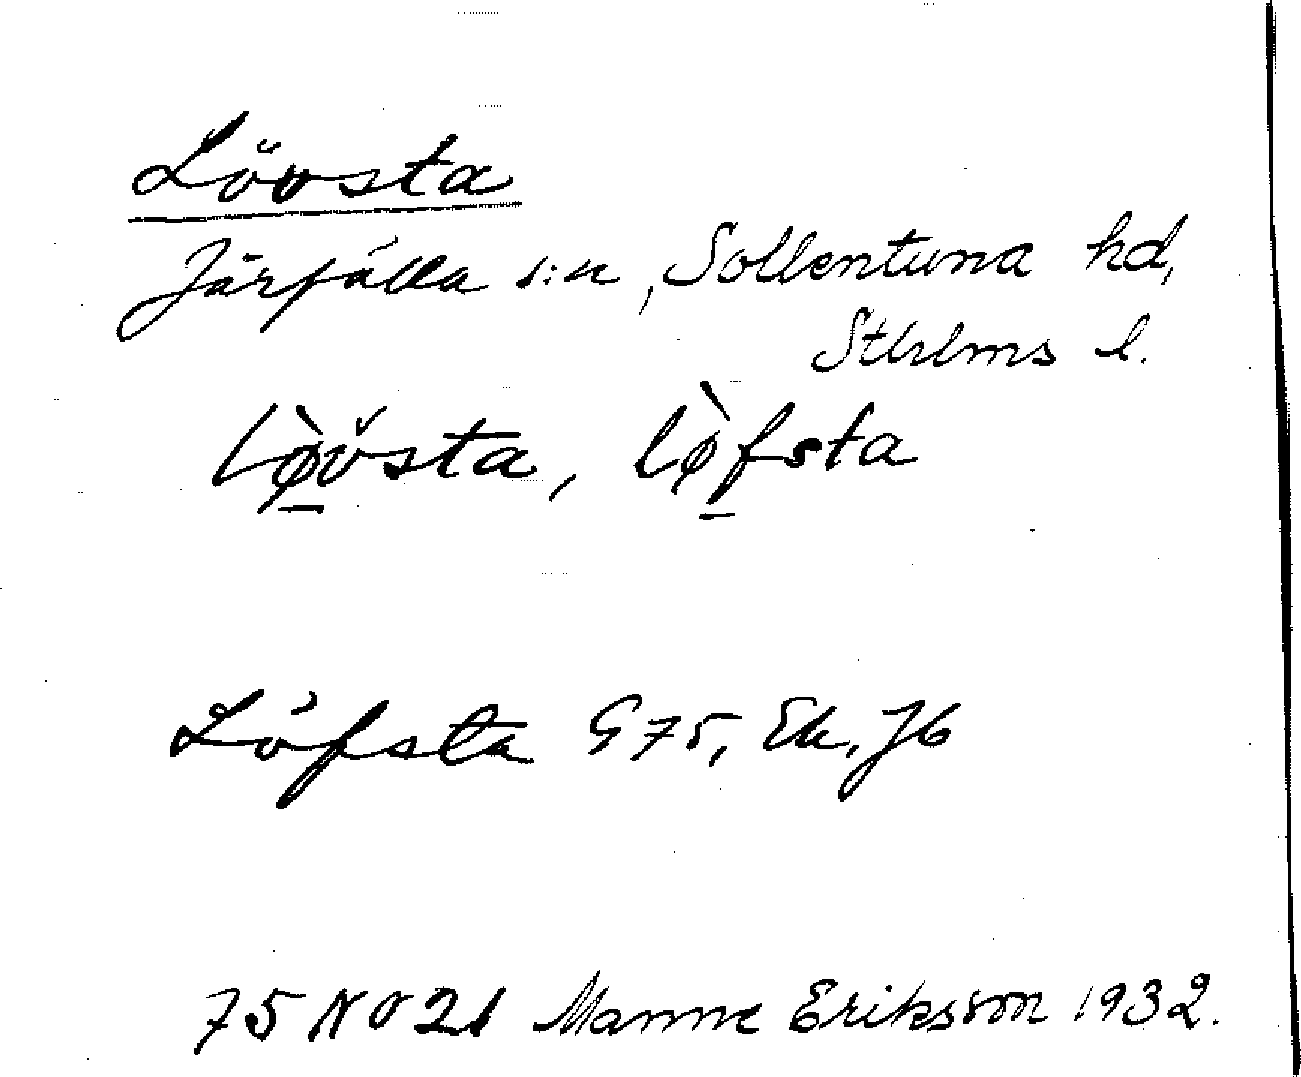 Lövsta
Järfälla s:n, Sollentuna hd,
Sthlms l.
lø̀vsta, lø̀fsta
Löfsta G 75, Ek, Jb
75 NO 21 Manne Eriksson 1932.